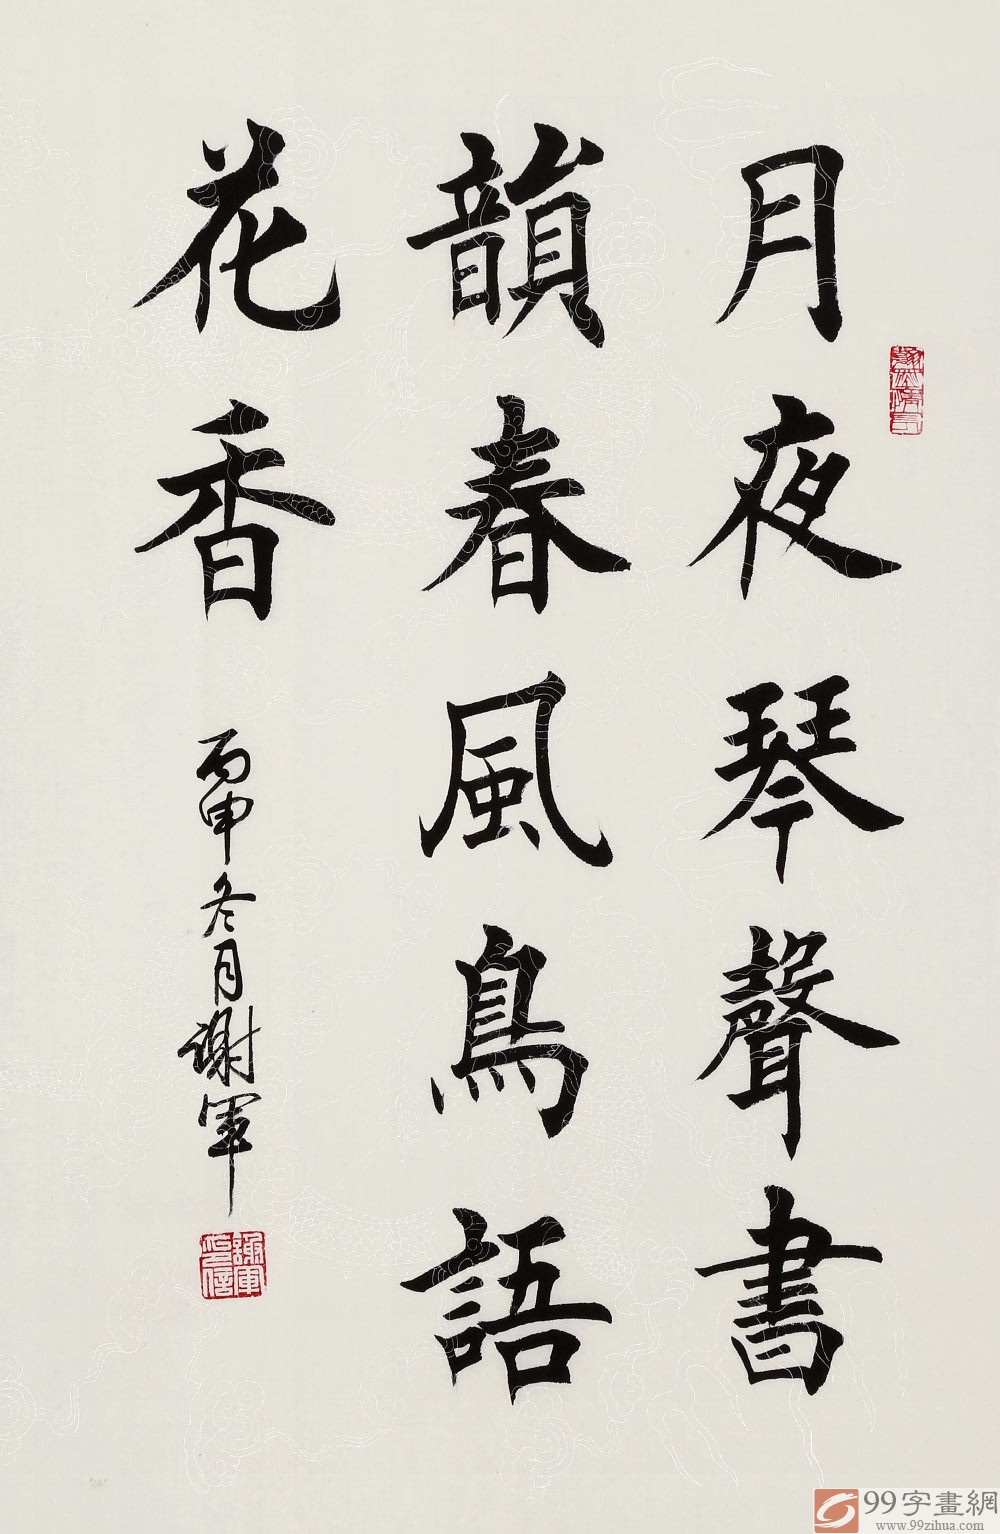 月夜琴聲書
韻春風鳥語
花香
丙申冬月謝軍
謝軍之信
99字畫網
www.99zihua.com